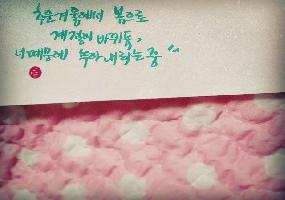 추운겨울에서 봄으로
계절이 바뀌듯,
너때문에 녹아내리는 중